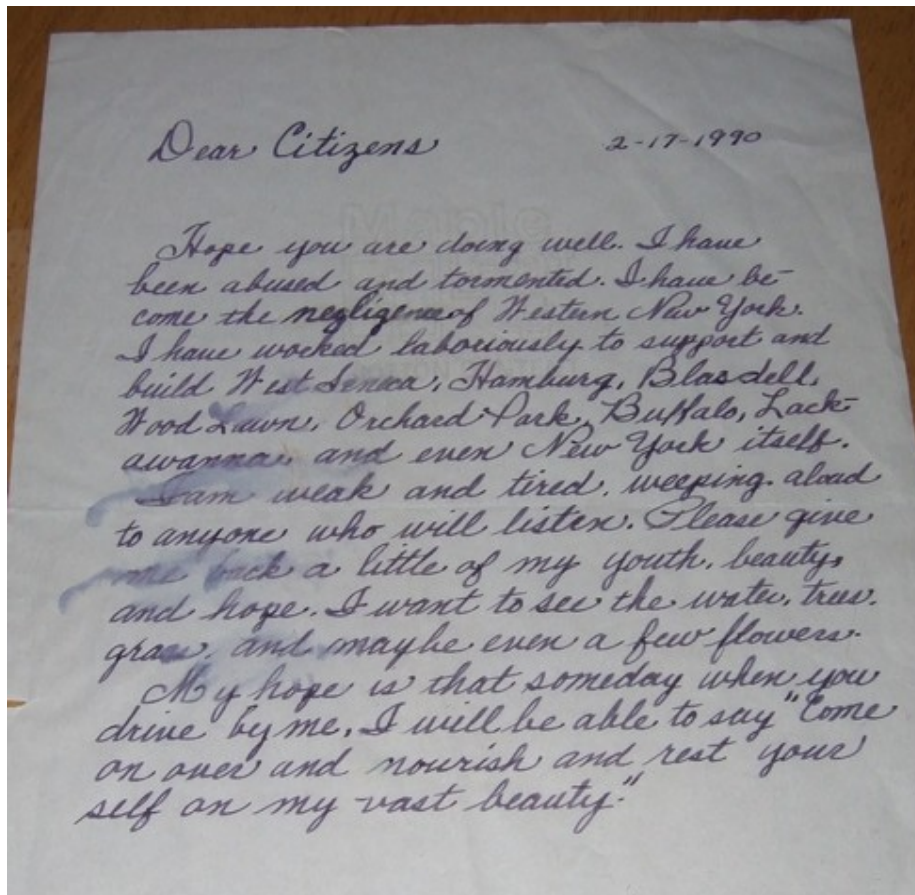 Dear Citizens 2-17-1990
Hope you are doing well. I have
been abused and tormented. I have be-
come the negligence of Western New York.
I have worked laboriously to support and
build West Seneca, Hamburg, Blasdell,
Wood Lawn, Orchard Park, Buffalo, Lack-
awanna, and even New York itself.
I am weak and tired, weeping aloud
to anyone who will listen. Please give
me back a little of my youth, beauty,
and hope. I want to see the water, trees,
grass, and maybe even a few flowers.
My hope is that someday when you
drive by me, I will be able to say "Come
on over and nourish and rest your
self on my vast beauty."